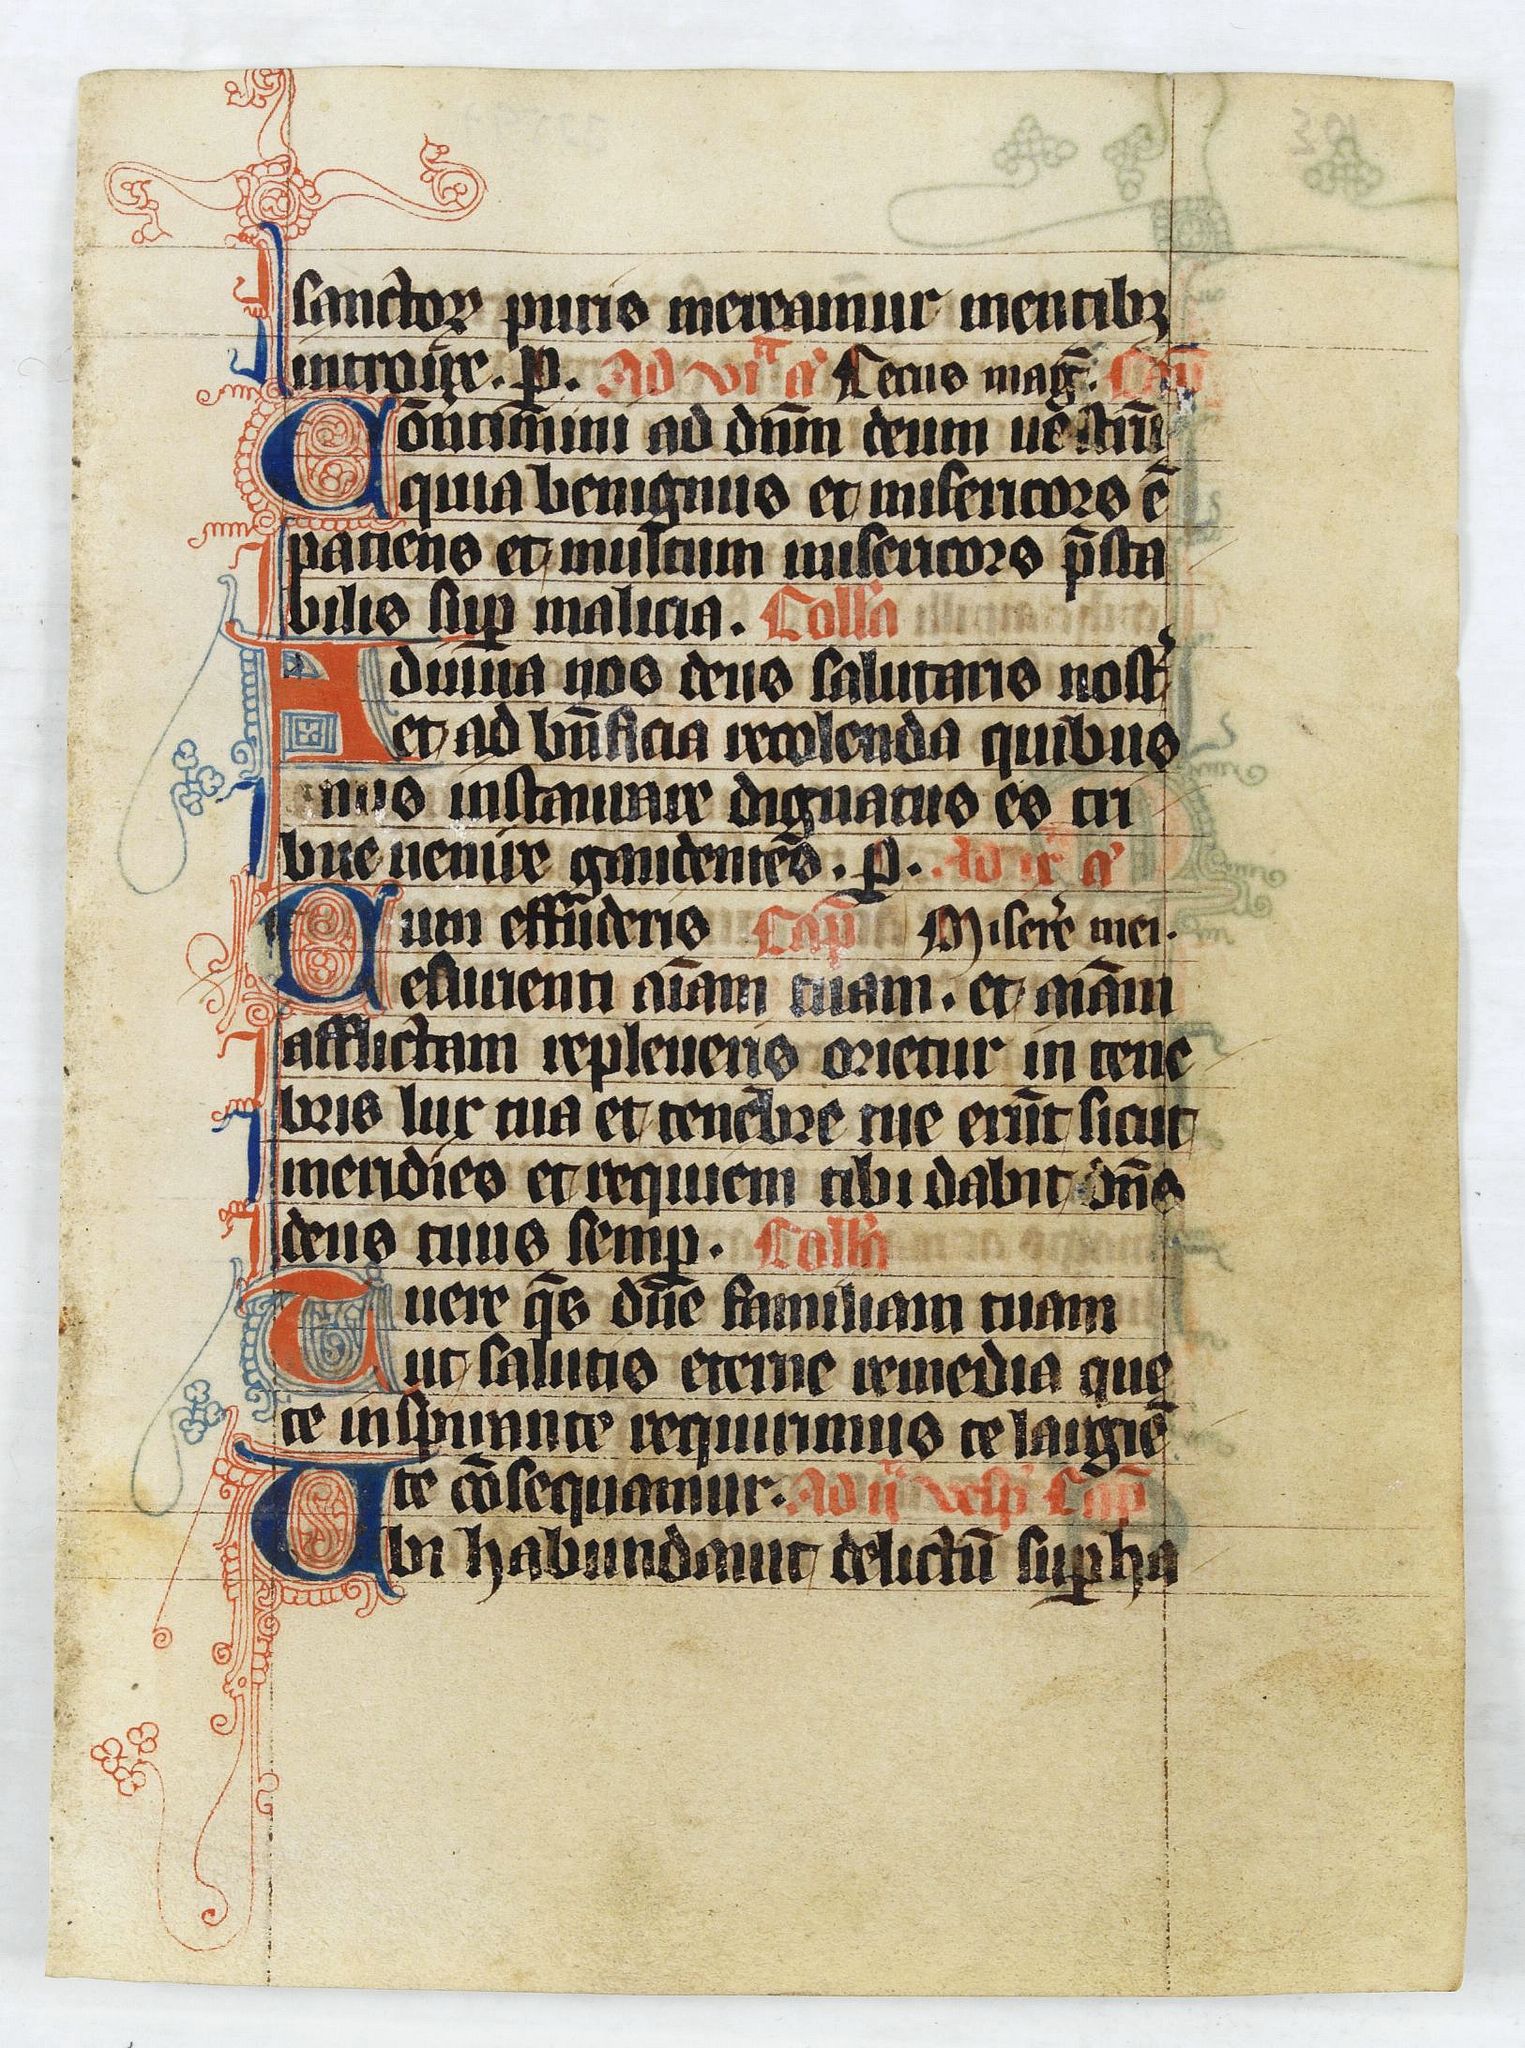 sanctoꝝ puris mereamur mentibꝫ
introire. P. Ad viᵃ a᷎ Cecus mag̅. Cap̅
Co̅uertimini ad dn̅m deum ue̅strū
quia benignus et misericors ē
patiens et multum misericors p̄sta
bilis suꝑ malicia. Coll̅a
Adiuua nos deus salutaris nost᷎
et ad bn̅ficia recolenda quibus
nus instaurare dignatus es tri
bue uenire gaudentes. P. Ad a᷎
Cum effuderis Cap̅ Misere᷎ mei.
esurienti aīam tuam. et aīam
afflictam repleueris orietur in tene
bris lux tua et tenebre tue erūt sicut
meridies et requiem tibi dabit dn̅s
deus tuus semꝑ. Coll̅a
Tuere q̅s dn̅e familiam tuam
ut salutis eterne remedia que
te inspirante requirimus te largiē
te cōsequamur. Ad ij vesp᷎ Cap̅
Ubi habundauit delictū suꝑha